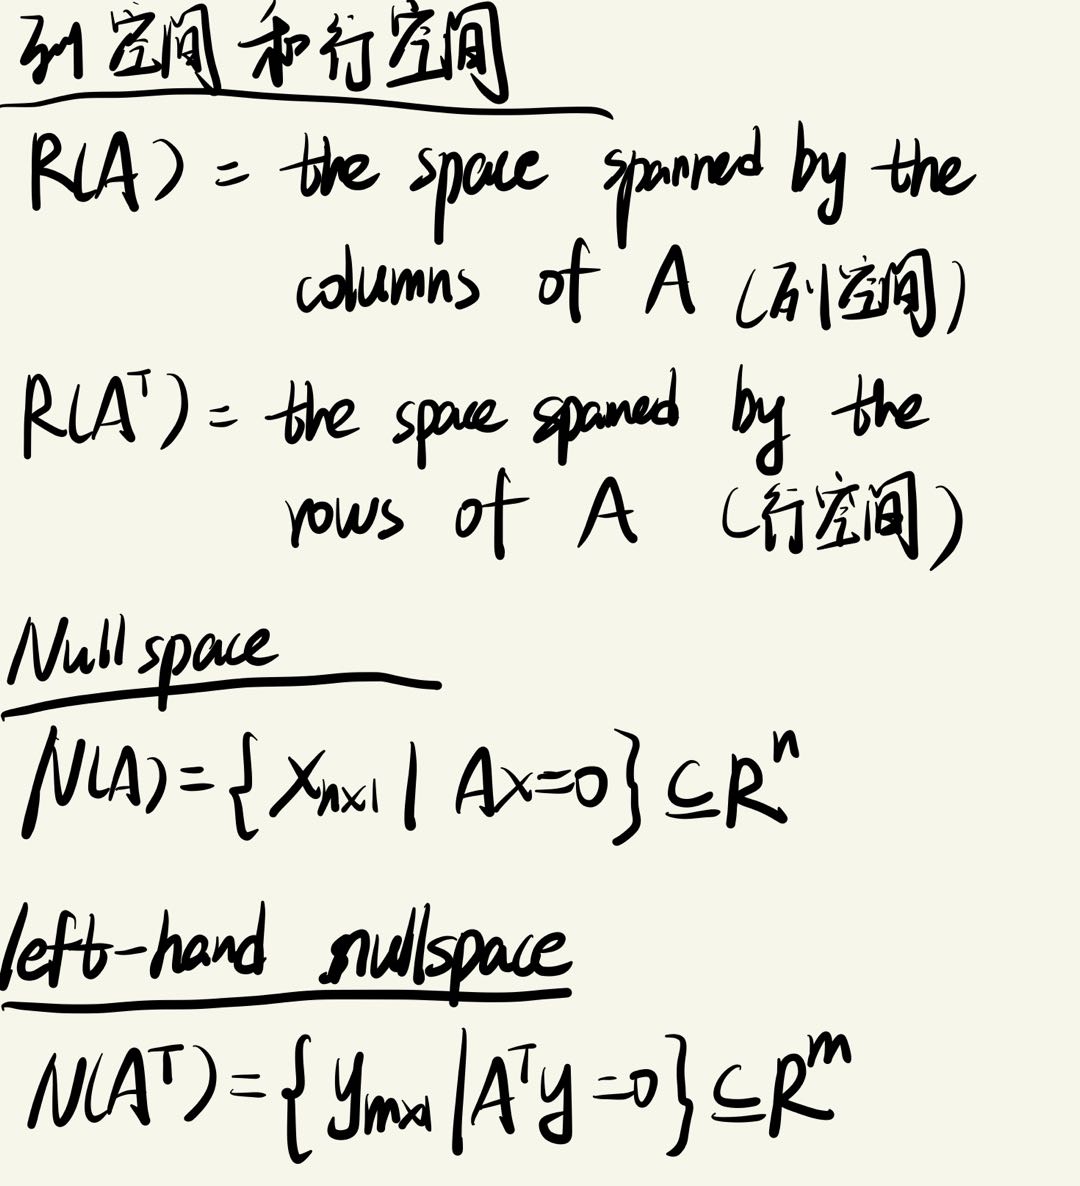 列空间和行空间
R(A) = the space spanned by the
columns of A (列空间)
R(Aᵀ) = the space spanned by the
rows of A (行空间)
Nullspace
N(A) = {xₙₓ₁ | Ax=0} ⊆ Rⁿ
left-hand nullspace
N(Aᵀ) = {yₘₓ₁ | Aᵀy=0} ⊆ Rᵐ